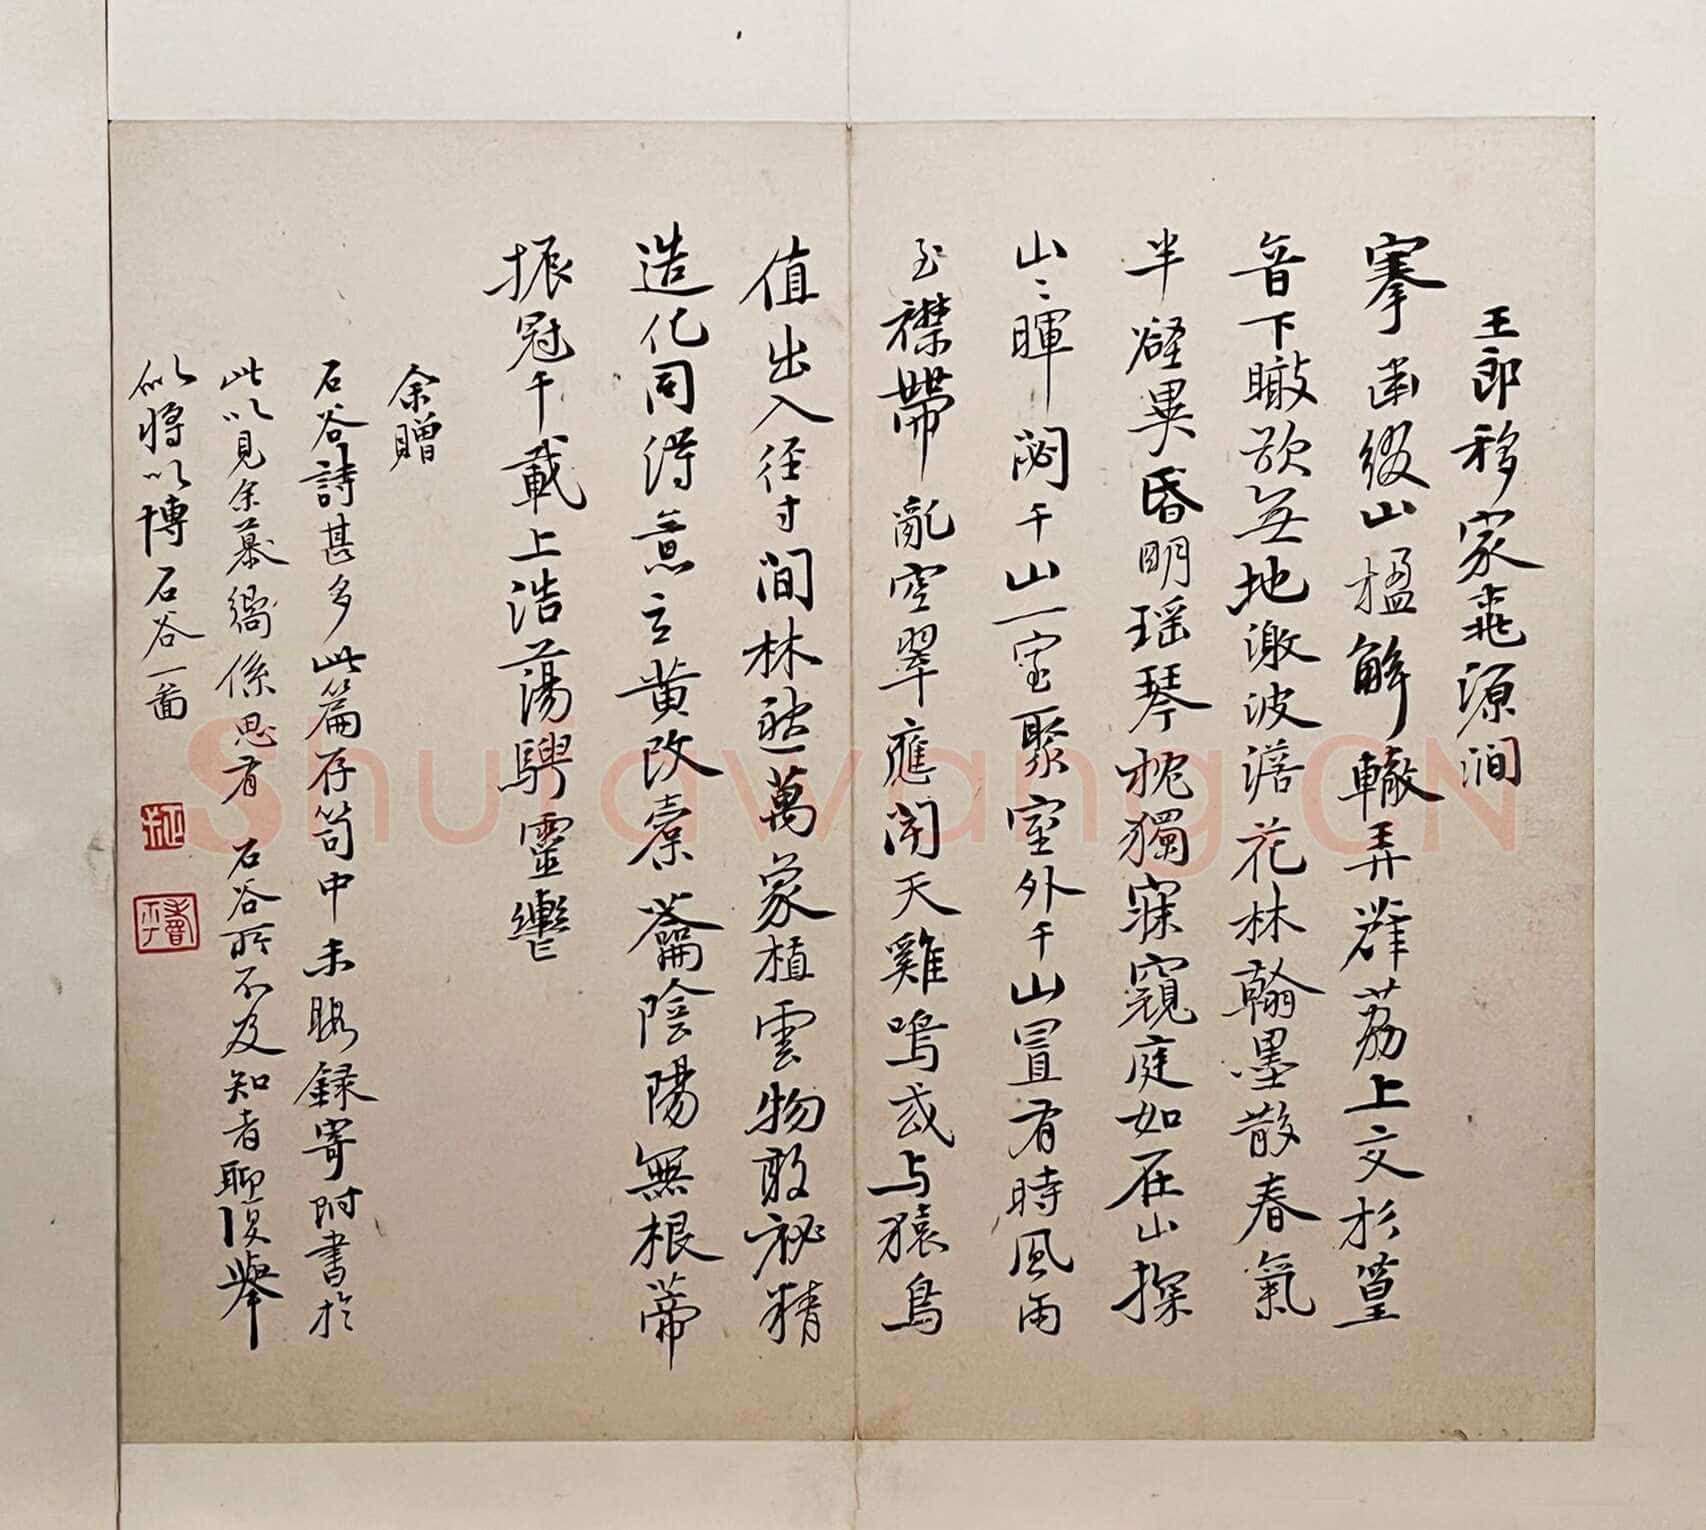 王郎移家桃源澗
搴幽綴山楹解轍弄群荔上文杉篁
音下瞰欲無地激波澹花林翰墨散春氣
半壁異昏明瑶琴枕獨寐窺庭如在山探
山〻暉閟千山一室聚室外千山冥有時風雨
至襟帶亂空翠應聞天雞鳴或与猿鳥
值出入径寸間林逖萬象植雲物敢祕精
造化同得意玄黄改橐籥陰陽無根蒂
振冠千載上浩蕩騁靈轡
余贈
石谷詩甚多此篇存笥中未暇録寄附書於
此以見余慕嚮係思有石谷所不及知者聊復舉
似將以博石谷一啚